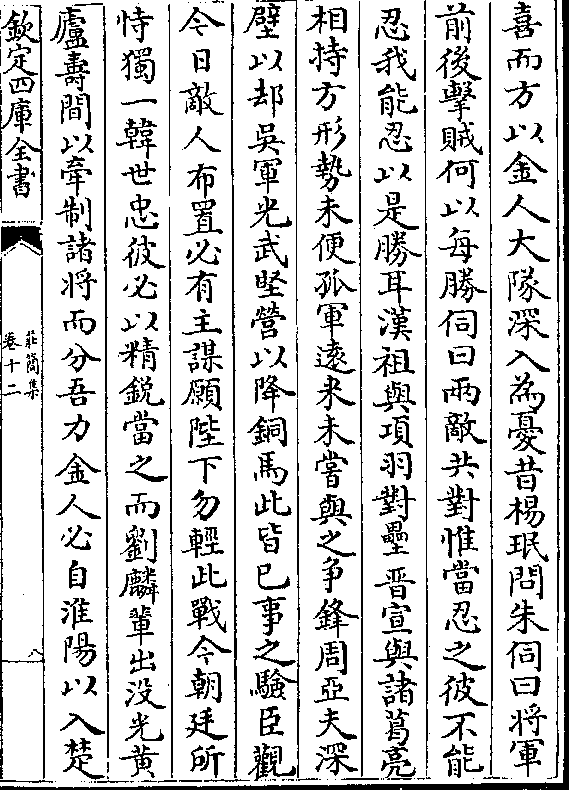 喜而方以金人大隊深入為憂昔楊珉問朱伺曰將軍
前後擊賊何以每勝伺曰兩敵共對惟當忍之彼不能
忍我能忍以是勝耳漢祖與項羽對壘晉宣與諸葛亮
相持方形勢未便孤軍逺来未嘗與之争鋒周亞夫深
壁以却吳軍光武堅營以降銅馬此皆已事之驗臣觀
今日敵人布置必有主謀願陛下勿輕此戰今朝廷所
恃獨一韓世忠彼必以精鋭當之而劉麟輩出没光黄
廬壽間以牽制諸將而分吾力金人必自淮陽以入楚
欽定四庫全書
莊簡集
卷十二
八